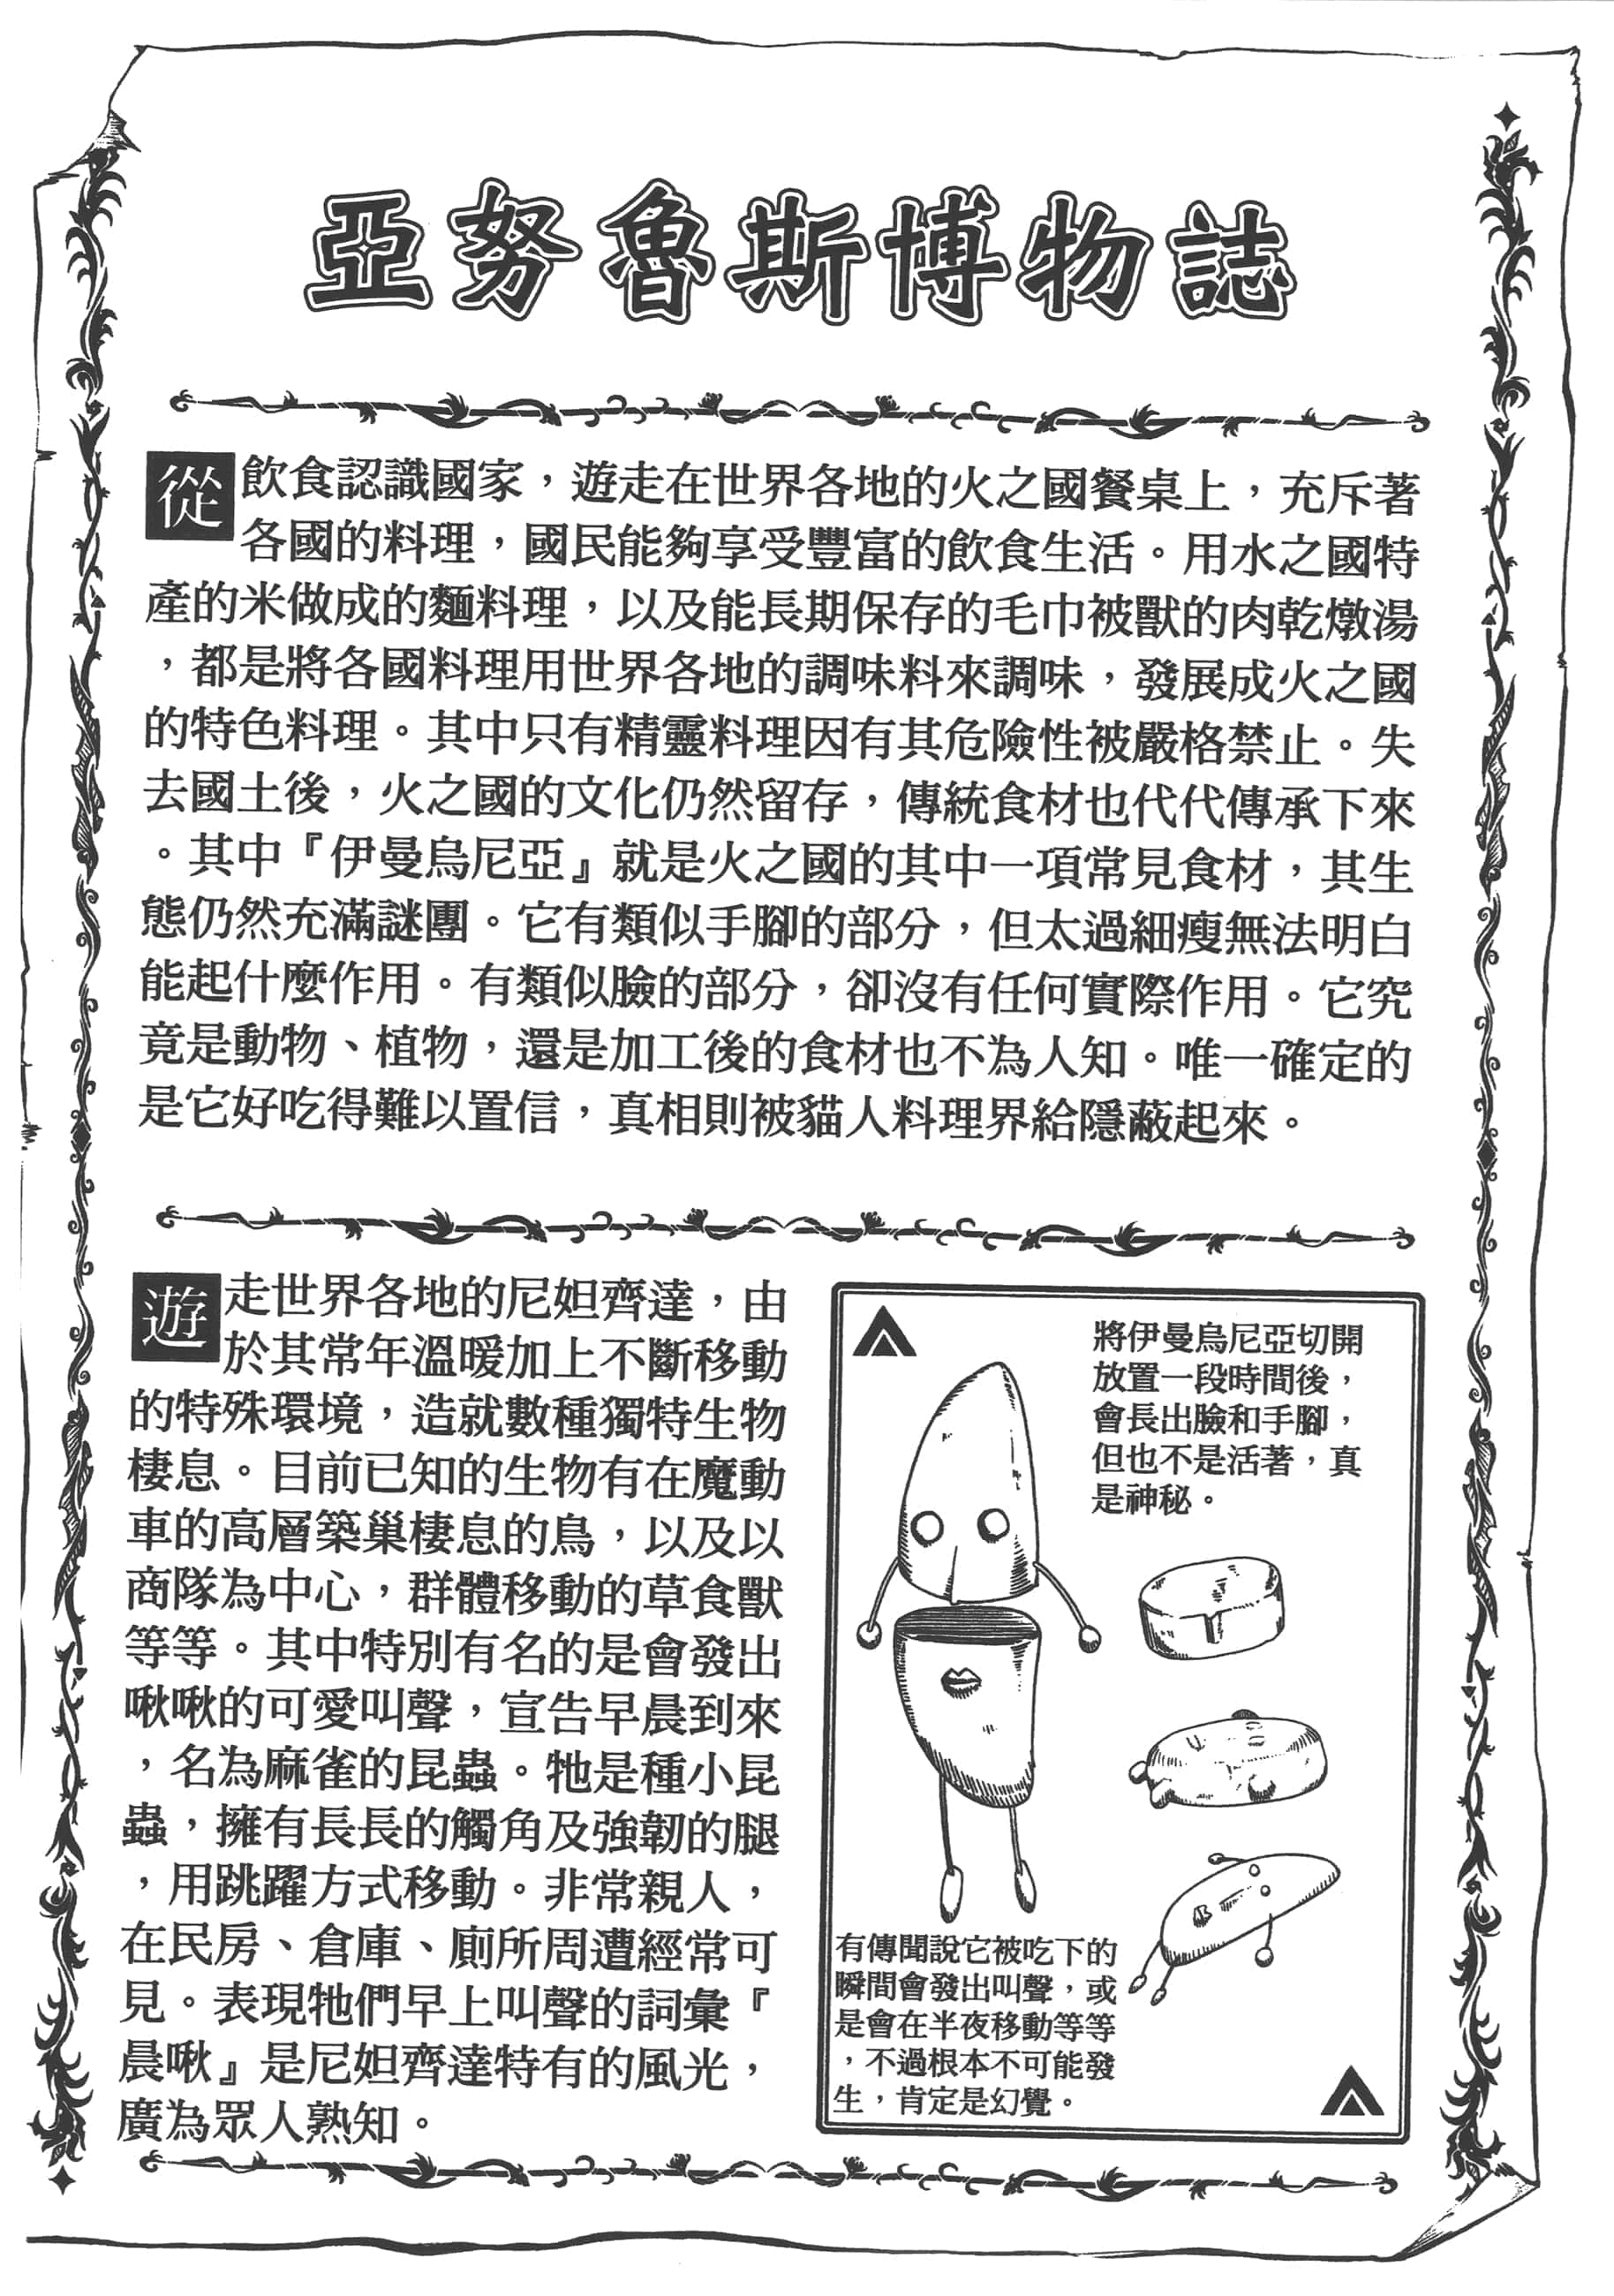 亞努魯斯博物誌
從飲食認識國家，遊走在世界各地的火之國餐桌上，充斥著
各國的料理，國民能夠享受豐富的飲食生活。用水之國特
產的米做成的麵料理，以及能長期保存的毛巾被獸的肉乾燉湯
，都是將各國料理用世界各地的調味料來調味，發展成火之國
的特色料理。其中只有精靈料理因有其危險性被嚴格禁止。失
去國土後，火之國的文化仍然留存，傳統食材也代代傳承下來
。其中『伊曼烏尼亞』就是火之國的其中一項常見食材，其生
態仍然充滿謎團。它有類似手腳的部分，但太過細瘦無法明白
能起什麼作用。有類似臉的部分，卻沒有任何實際作用。它究
竟是動物、植物，還是加工後的食材也不為人知。唯一確定的
是它好吃得難以置信，真相則被貓人料理界給隱蔽起來。
遊走世界各地的尼妲齊達，由
於其常年溫暖加上不斷移動
的特殊環境，造就數種獨特生物
棲息。目前已知的生物有在魔動
車的高層築巢棲息的鳥，以及以
商隊為中心，群體移動的草食獸
等等。其中特別有名的是會發出
啾啾的可愛叫聲，宣告早晨到來
，名為麻雀的昆蟲。牠是種小昆
蟲，擁有長長的觸角及強韌的腿
，用跳躍方式移動。非常親人，
在民房、倉庫、廁所周遭經常可
見。表現牠們早上叫聲的詞彙『
晨啾』是尼妲齊達特有的風光，
廣為眾人熟知。
將伊曼烏尼亞切開
放置一段時間後，
會長出臉和手腳，
但也不是活著，真
是神秘。
有傳聞說它被吃下的
瞬間會發出叫聲，或
是會在半夜移動等等
，不過根本不可能發
生，肯定是幻覺。